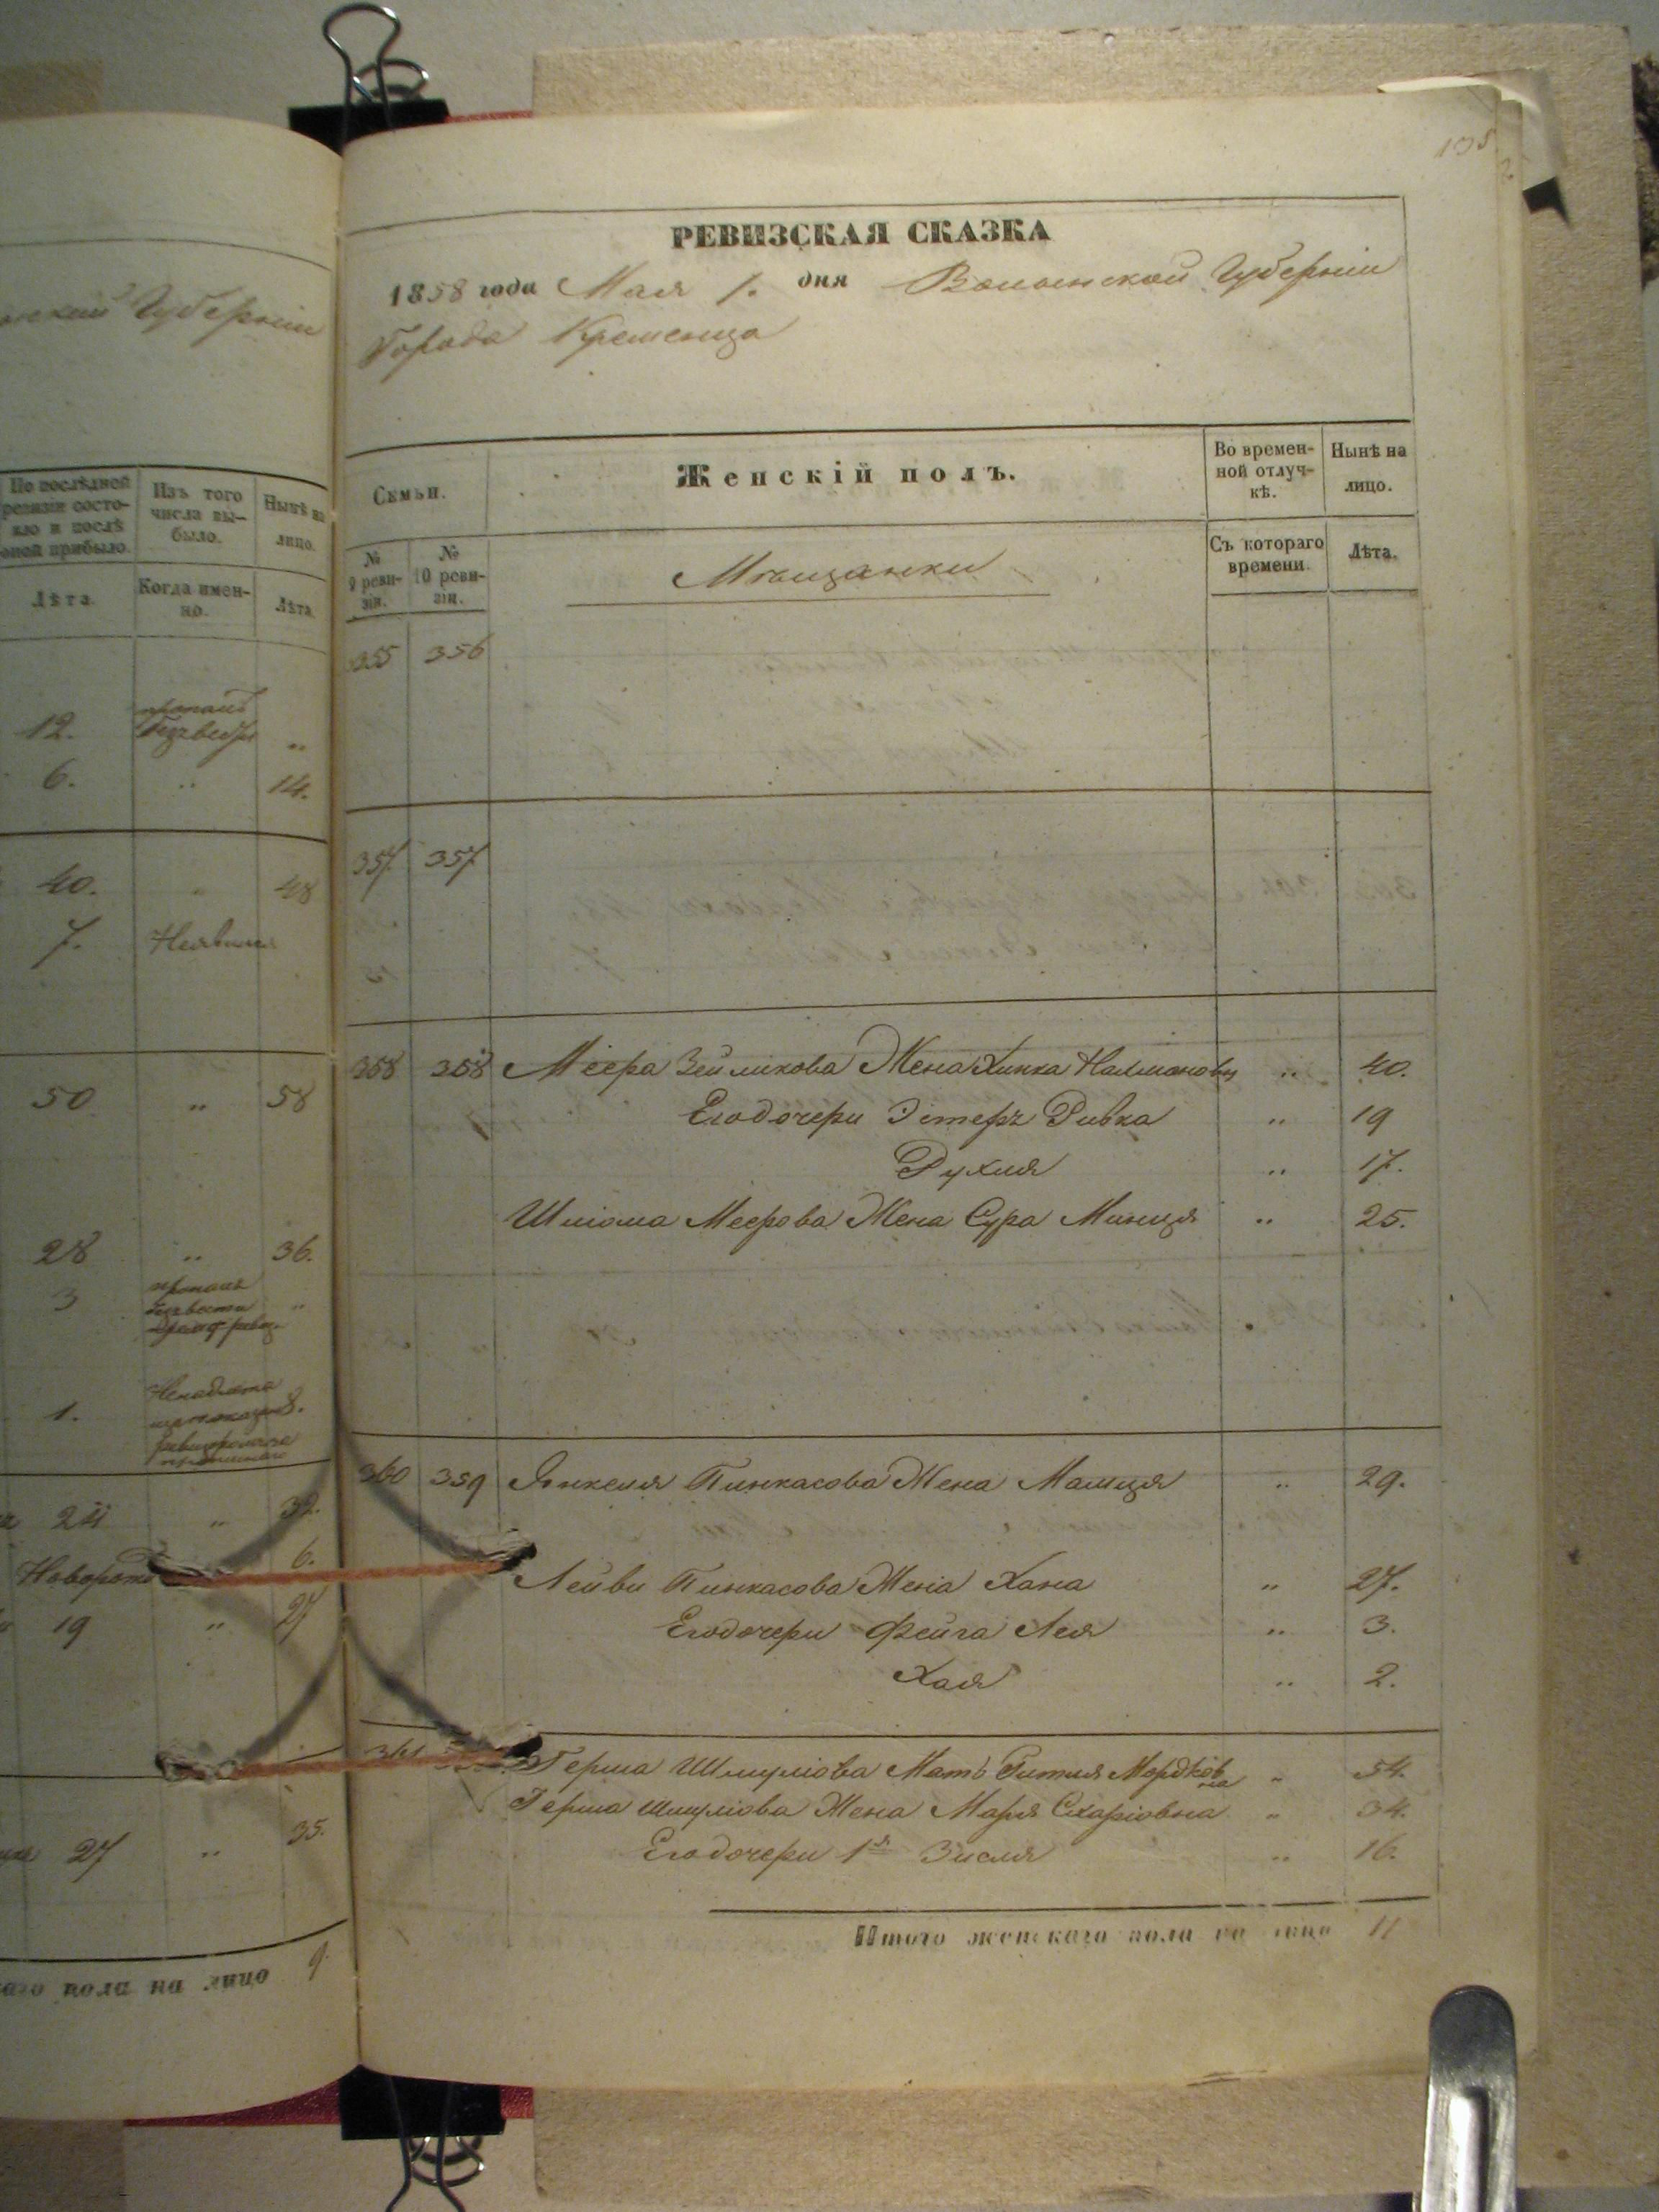 135
РЕВИЗСКАЯ СКАЗКА
1858 года Мая 1. дня Волынской Губерніи
Города Кременца
Губерніи
По послѣдней ревизіи состояло и послѣ оной прибыло.
Изъ того числа выбыло.
Нынѣ на лицо.
Лѣта.
Когда именно.
Лѣта
12.
6. 14.
40. 48
7. Неявился
50 „ 58
28 „ 36.
3 „
1.
24 „ 32.
6.
19 „ 27
27 „ 35.
пола на лицо 9.
Семьи.
Женскій полъ.
Во временной отлучкѣ.
Нынѣ на лицо.
№ 9 ревизіи.
№ 10 ревизіи.
Мѣщанки
Съ котораго времени.
Лѣта.
355 356
357. 357.
358 358 Меера Зейликова Жена Хипка Налмановна „ 40.
Его дочери Эстеръ Ривка „ 19
Рухля „ 17.
Шліома Меерова Жена Сура Минця „ 25.
360 359 Янкеля Пинкасова Жена Малця „ 29.
Лейви Пинкасова Жена Хана „ 27.
Его дочери Фейга Лея „ 3.
Хая „ 2.
361 Герша Шмуліова Мать Гитля Мордковна „ 54.
Герша Шмуліова Жена Маря Схаріовна „ 34.
Его дочери 1я Зисля „ 16.
Итого женскаго пола на лицо 11